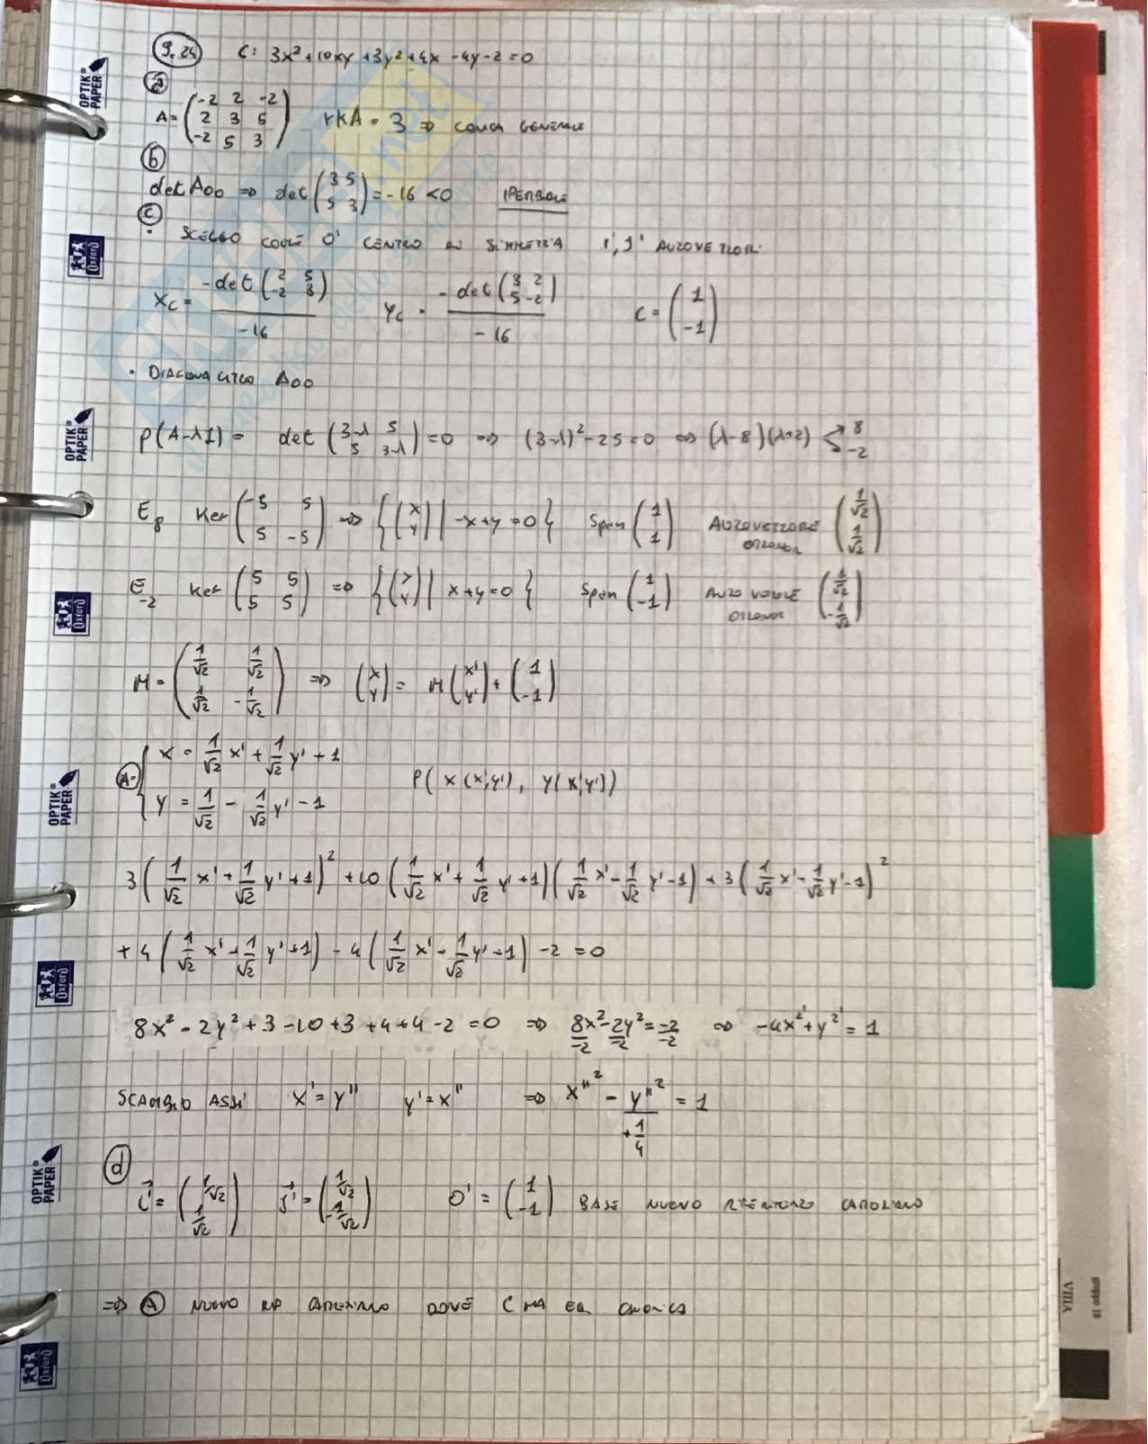 9.24 C: 3x²+10xy+3y²+4x-4y-2=0
a
A=(-2 2 -2; 2 3 5; -2 5 3) rkA = 3 ⇒ CONICA GENERALE
b
det A₀₀ ⇒ det(3 5; 5 3) = -16 <0 IPERBOLE
c
• SCELGO COME O' CENTRO DI SIMMETRIA i', j' AUTOVETTORI
x_c = -det(2 5; -2 3) / -16 y_c = -det(3 2; 5 -2) / -16 C = (1; -1)
• DIAGONALIZZO A₀₀
p(A-λI) = det(3-λ 5; 5 3-λ) = 0 ⇒ (3-λ)²-25=0 ⇔ (λ-8)(λ+2) < 8 -2
E₈ Ker(-5 5; 5 -5) ⇒ {(x; y) | -x+y=0} Span(1; 1) AUTOVETTORE ORTONOR (1/√2; 1/√2)
E₋₂ Ker(5 5; 5 5) ⇒ {(x; y) | x+y=0} Span(1; -1) ORTONOR (1/√2; -1/√2)
M = (1/√2 1/√2; 1/√2 -1/√2) ⇒ (x; y) = M(x'; y') + (1; -1)
A { x = 1/√2 x' + 1/√2 y' + 1
y = 1/√2 - 1/√2 y' - 1 P(x(x',y'), y(x',y'))
3(1/√2 x' + 1/√2 y' + 1)² + 10(1/√2 x' + 1/√2 y' + 1)(1/√2 x' - 1/√2 y' - 1) + 3(1/√2 x' - 1/√2 y' - 1)²
+ 4(1/√2 x' + 1/√2 y' + 1) - 4(1/√2 x' - 1/√2 y' - 1) - 2 = 0
8x² - 2y² + 3 - 10 + 3 + 4 + 4 - 2 = 0 ⇒ 8x²/-2 - 2y²/-2 = -2/-2 ⇒ -4x'² + y'² = 1
SCAMBIO ASSI x' = y'' y' = x'' ⇒ x''² - y''²/+1/4 = 1
d
i' = (1/√2; 1/√2) j' = (1/√2; -1/√2) O' = (1; -1) BASE NUOVO RIFERIMENTO CANONICO
⇒ A NUOVO DOVE C HA EQ CANONICA
OPTIK PAPER
Oxford
OPTIK PAPER
Oxford
OPTIK PAPER
Oxford
OPTIK PAPER
Oxford